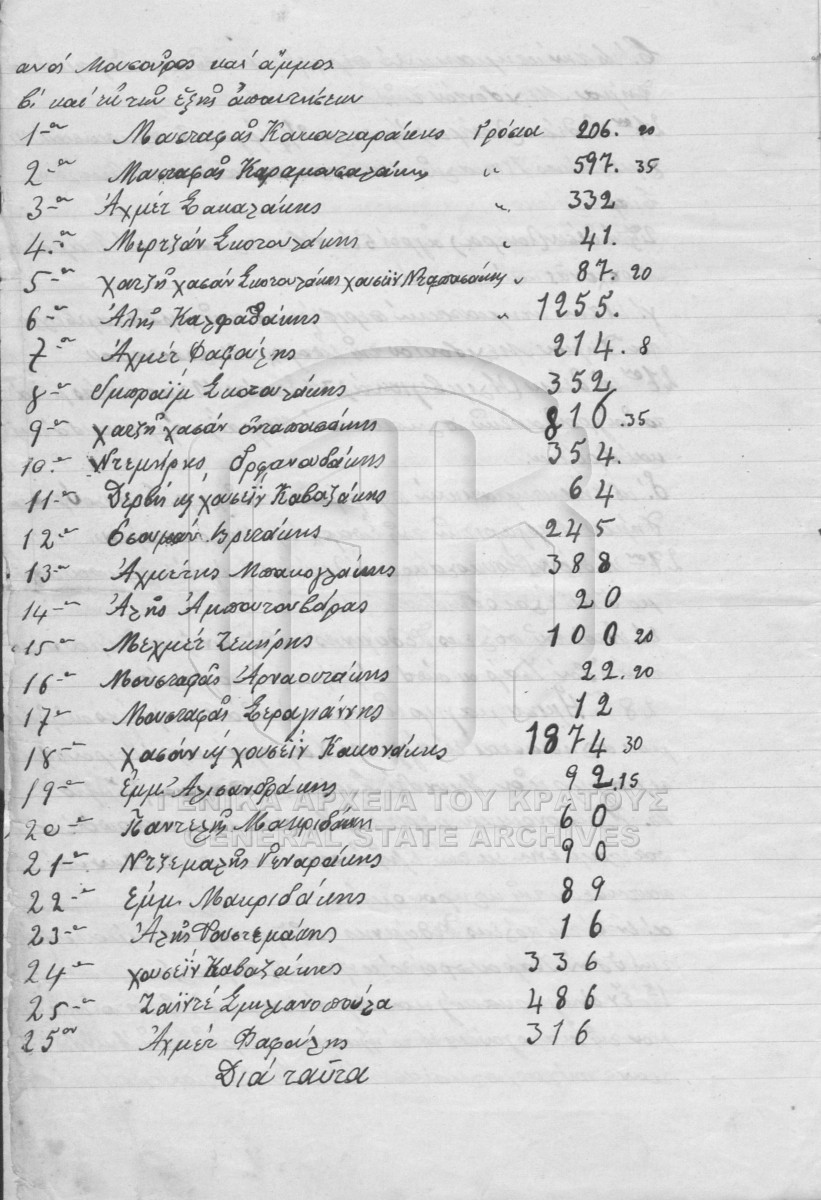 ανοί Μουσοῦρος καί ἄμμος
β' καί ἐκ τῶν ἑξῆς ἀπαιτήσεων
1-ον Μουσταφᾶς Κακουτιαράκης Γρόσια 206. 20
2-ον Μουσταφᾶς Καραμουσαλάκης " 597. 35
3-ον Ἀχμέτ Σακαλάκης " 332
4-ον Μερτζάν Σκουτουλάκης " 41.
5-ον χατζῆ χασάν Σκουτουλάκης χουσεϊν Νταπασάκης " 87. 20
6-ον Ἀλῆς Καλφαδάκης " 1255.
7-ον Ἀχμέτ Φαφούλης 214. 8
8-ον Ὀμπραϊμ Σκουτουλάκης 352
9-ον χατζῆ χασάν ὀνταπασάκης 810 .35
10-ον Ντεμίρης Ὀρφανουδάκης 354.
11-ον Δερβίς κ χουσεϊν Καβαζάκης 64
12-ον Ὀσουμάν Βρετάκης 245
13-ον Ἀχμέτης Μπακογλάκης 388
14-ον Ἀλῆς Ἀμπουτουβάρας 20
15-ον Μεχμέτ Ζεκίρης 100 20
16-ον Μουσταφᾶς Ἀρναουτάκης 22. 20
17-ον Μουσταφᾶς Σεραγιάννης 12
18-ον χασάν κ χουσεϊν Κακονάκης 1874 30
19-ον Ἐμμ. Αλισανδράκης 92.15
20-ον Παντελῆς Μακριδάκης 60
21-ον Ντζεμαλῆς Γεναράκης 90
22-ον Εμμ. Μακριδάκης 89
23-ον Ἀλῆς Ρουστεμάκης 16
24-ον χουσεϊν Καβαζάκης 336
25-ον Ζαϊντέ Σμιλιανοπούλα 486
25ον Ἀχμέτ Φαφούλης 316
Διά ταῦτα
ΓΕΝΙΚΑ ΑΡΧΕΙΑ ΤΟΥ ΚΡΑΤΟΥΣ
GENERAL STATE ARCHIVES